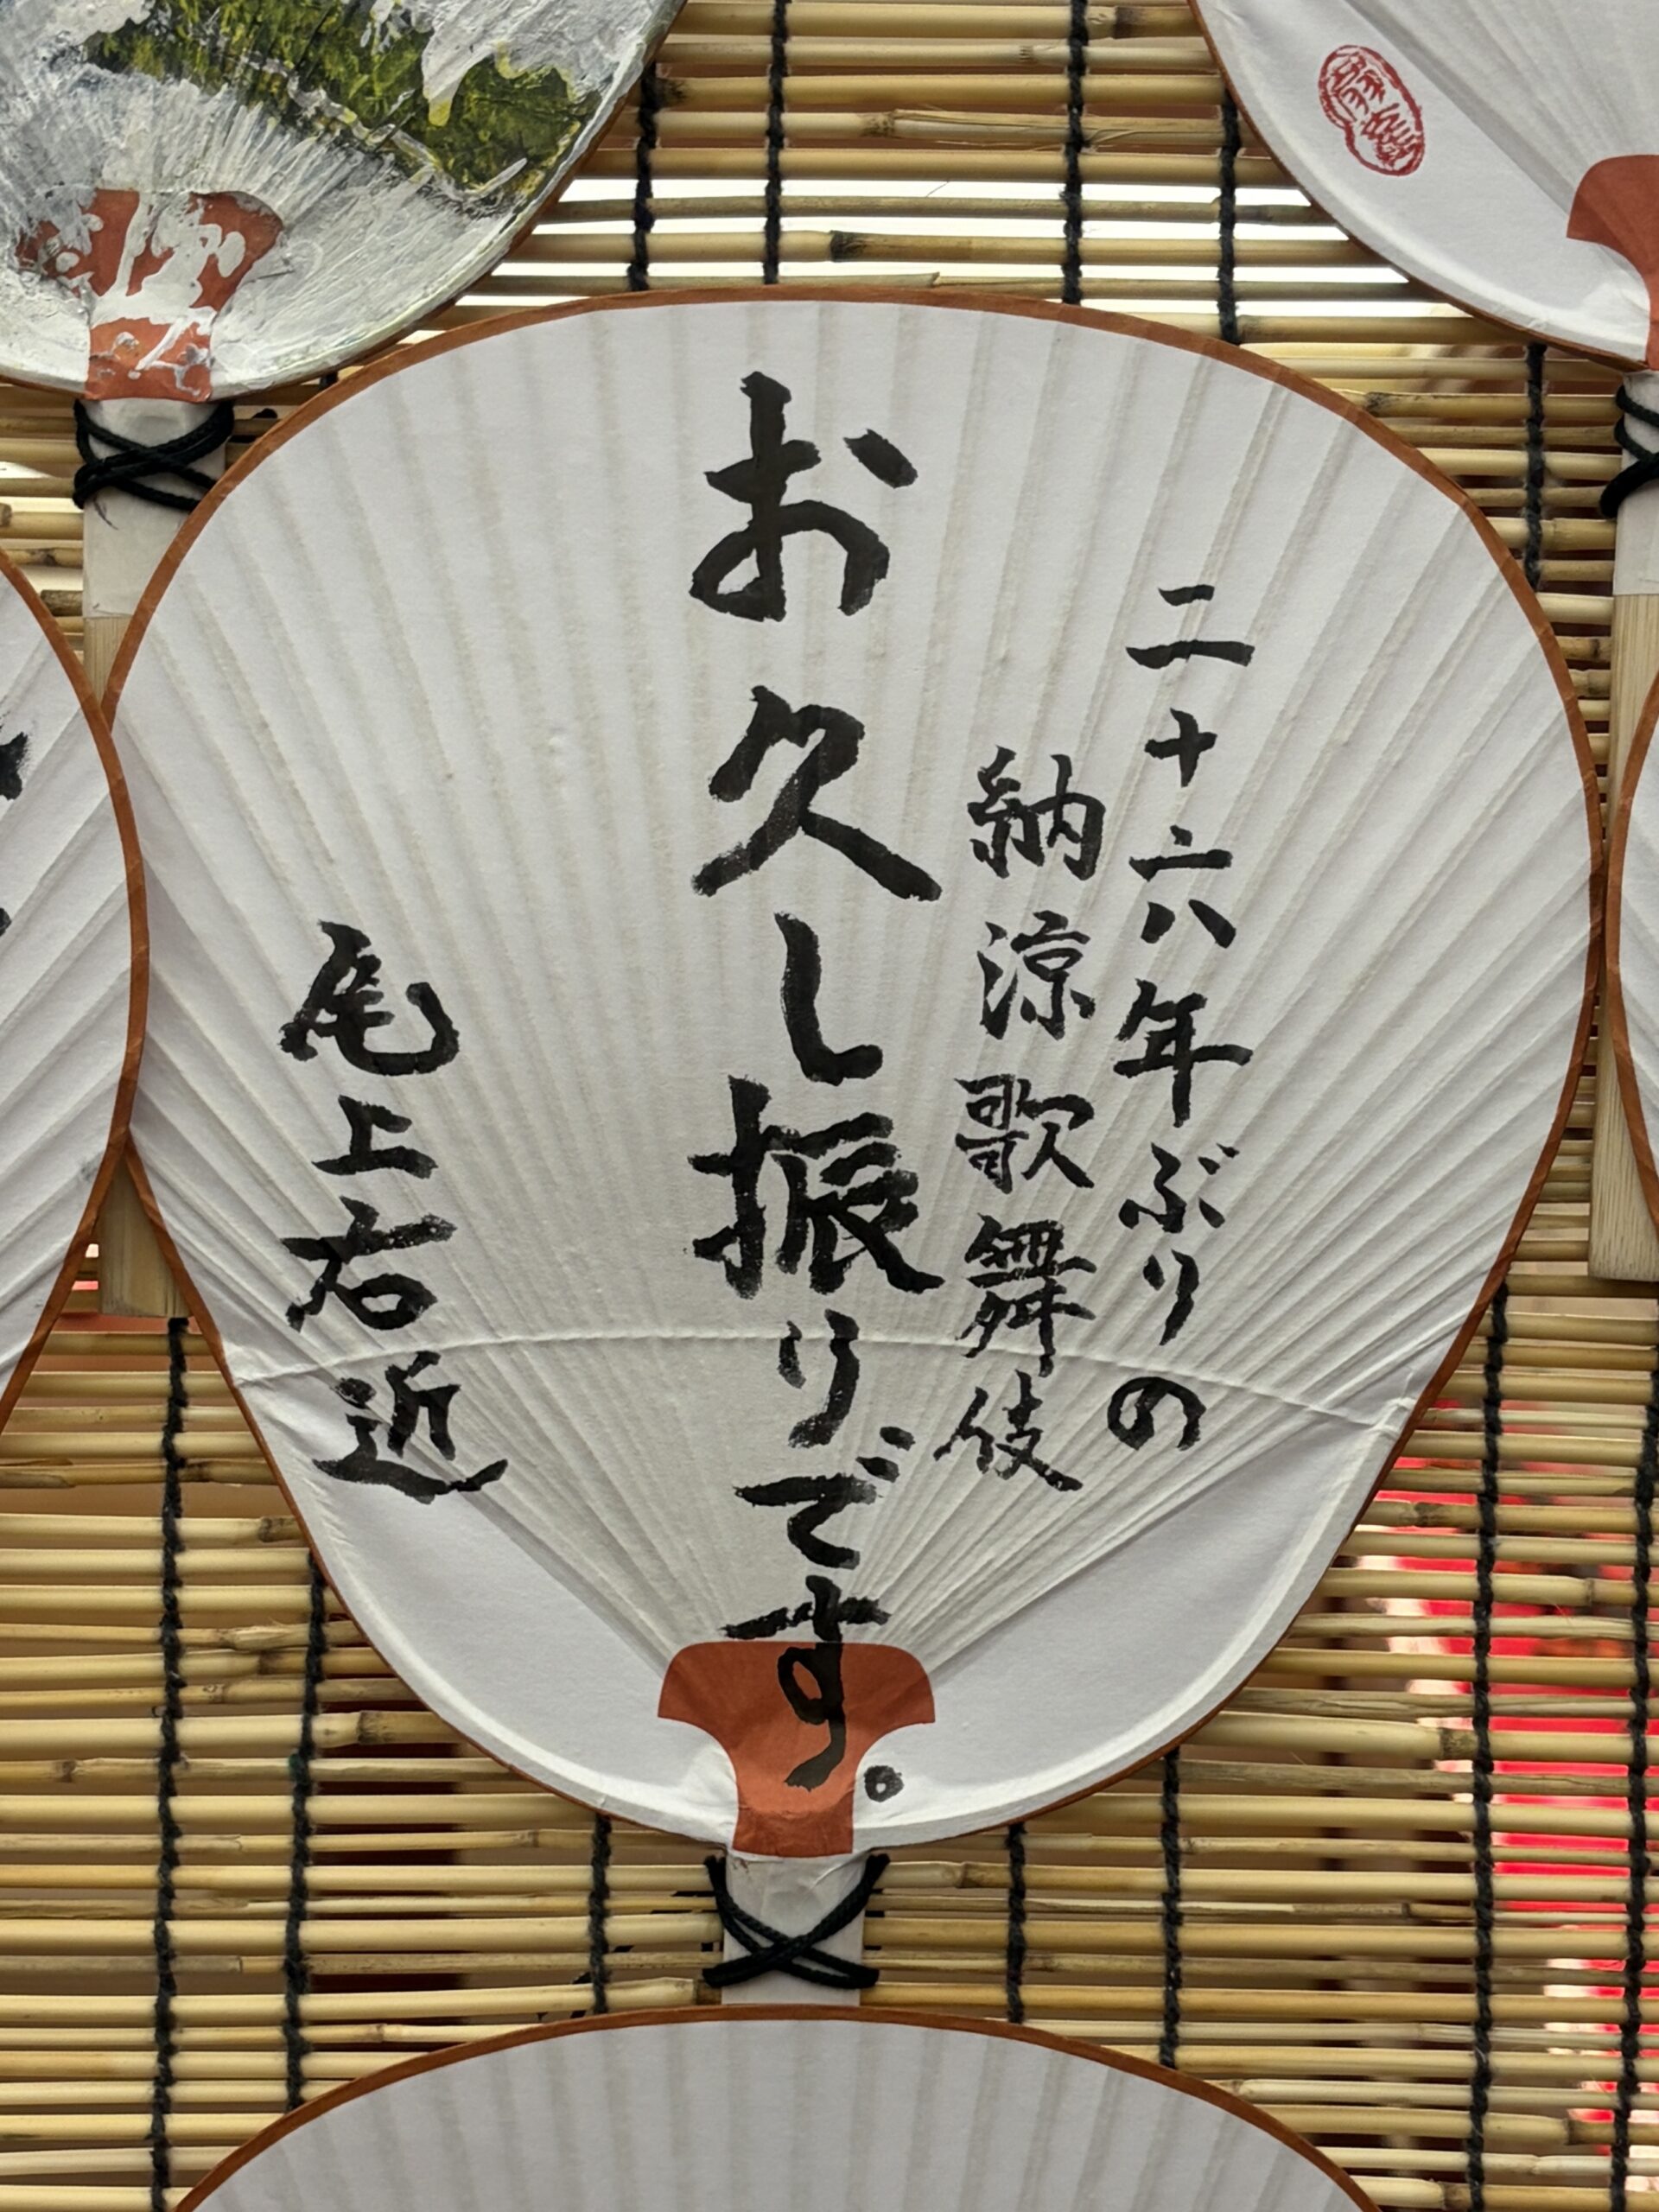 二十六年ぶりの
納涼歌舞伎
お久し振りです。
尾上右近